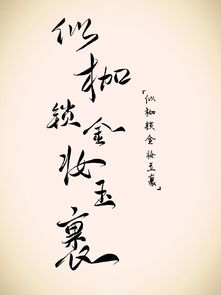 似枷锁金妆玉裹
「似枷锁金妆玉裹」